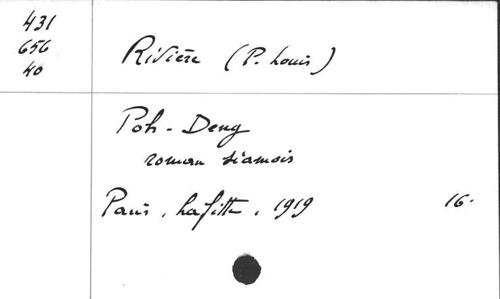 431
656
40
Rivière (P. Louis)
Poh-Deng
roman siamois
Paris, Lafitte, 1919 16.